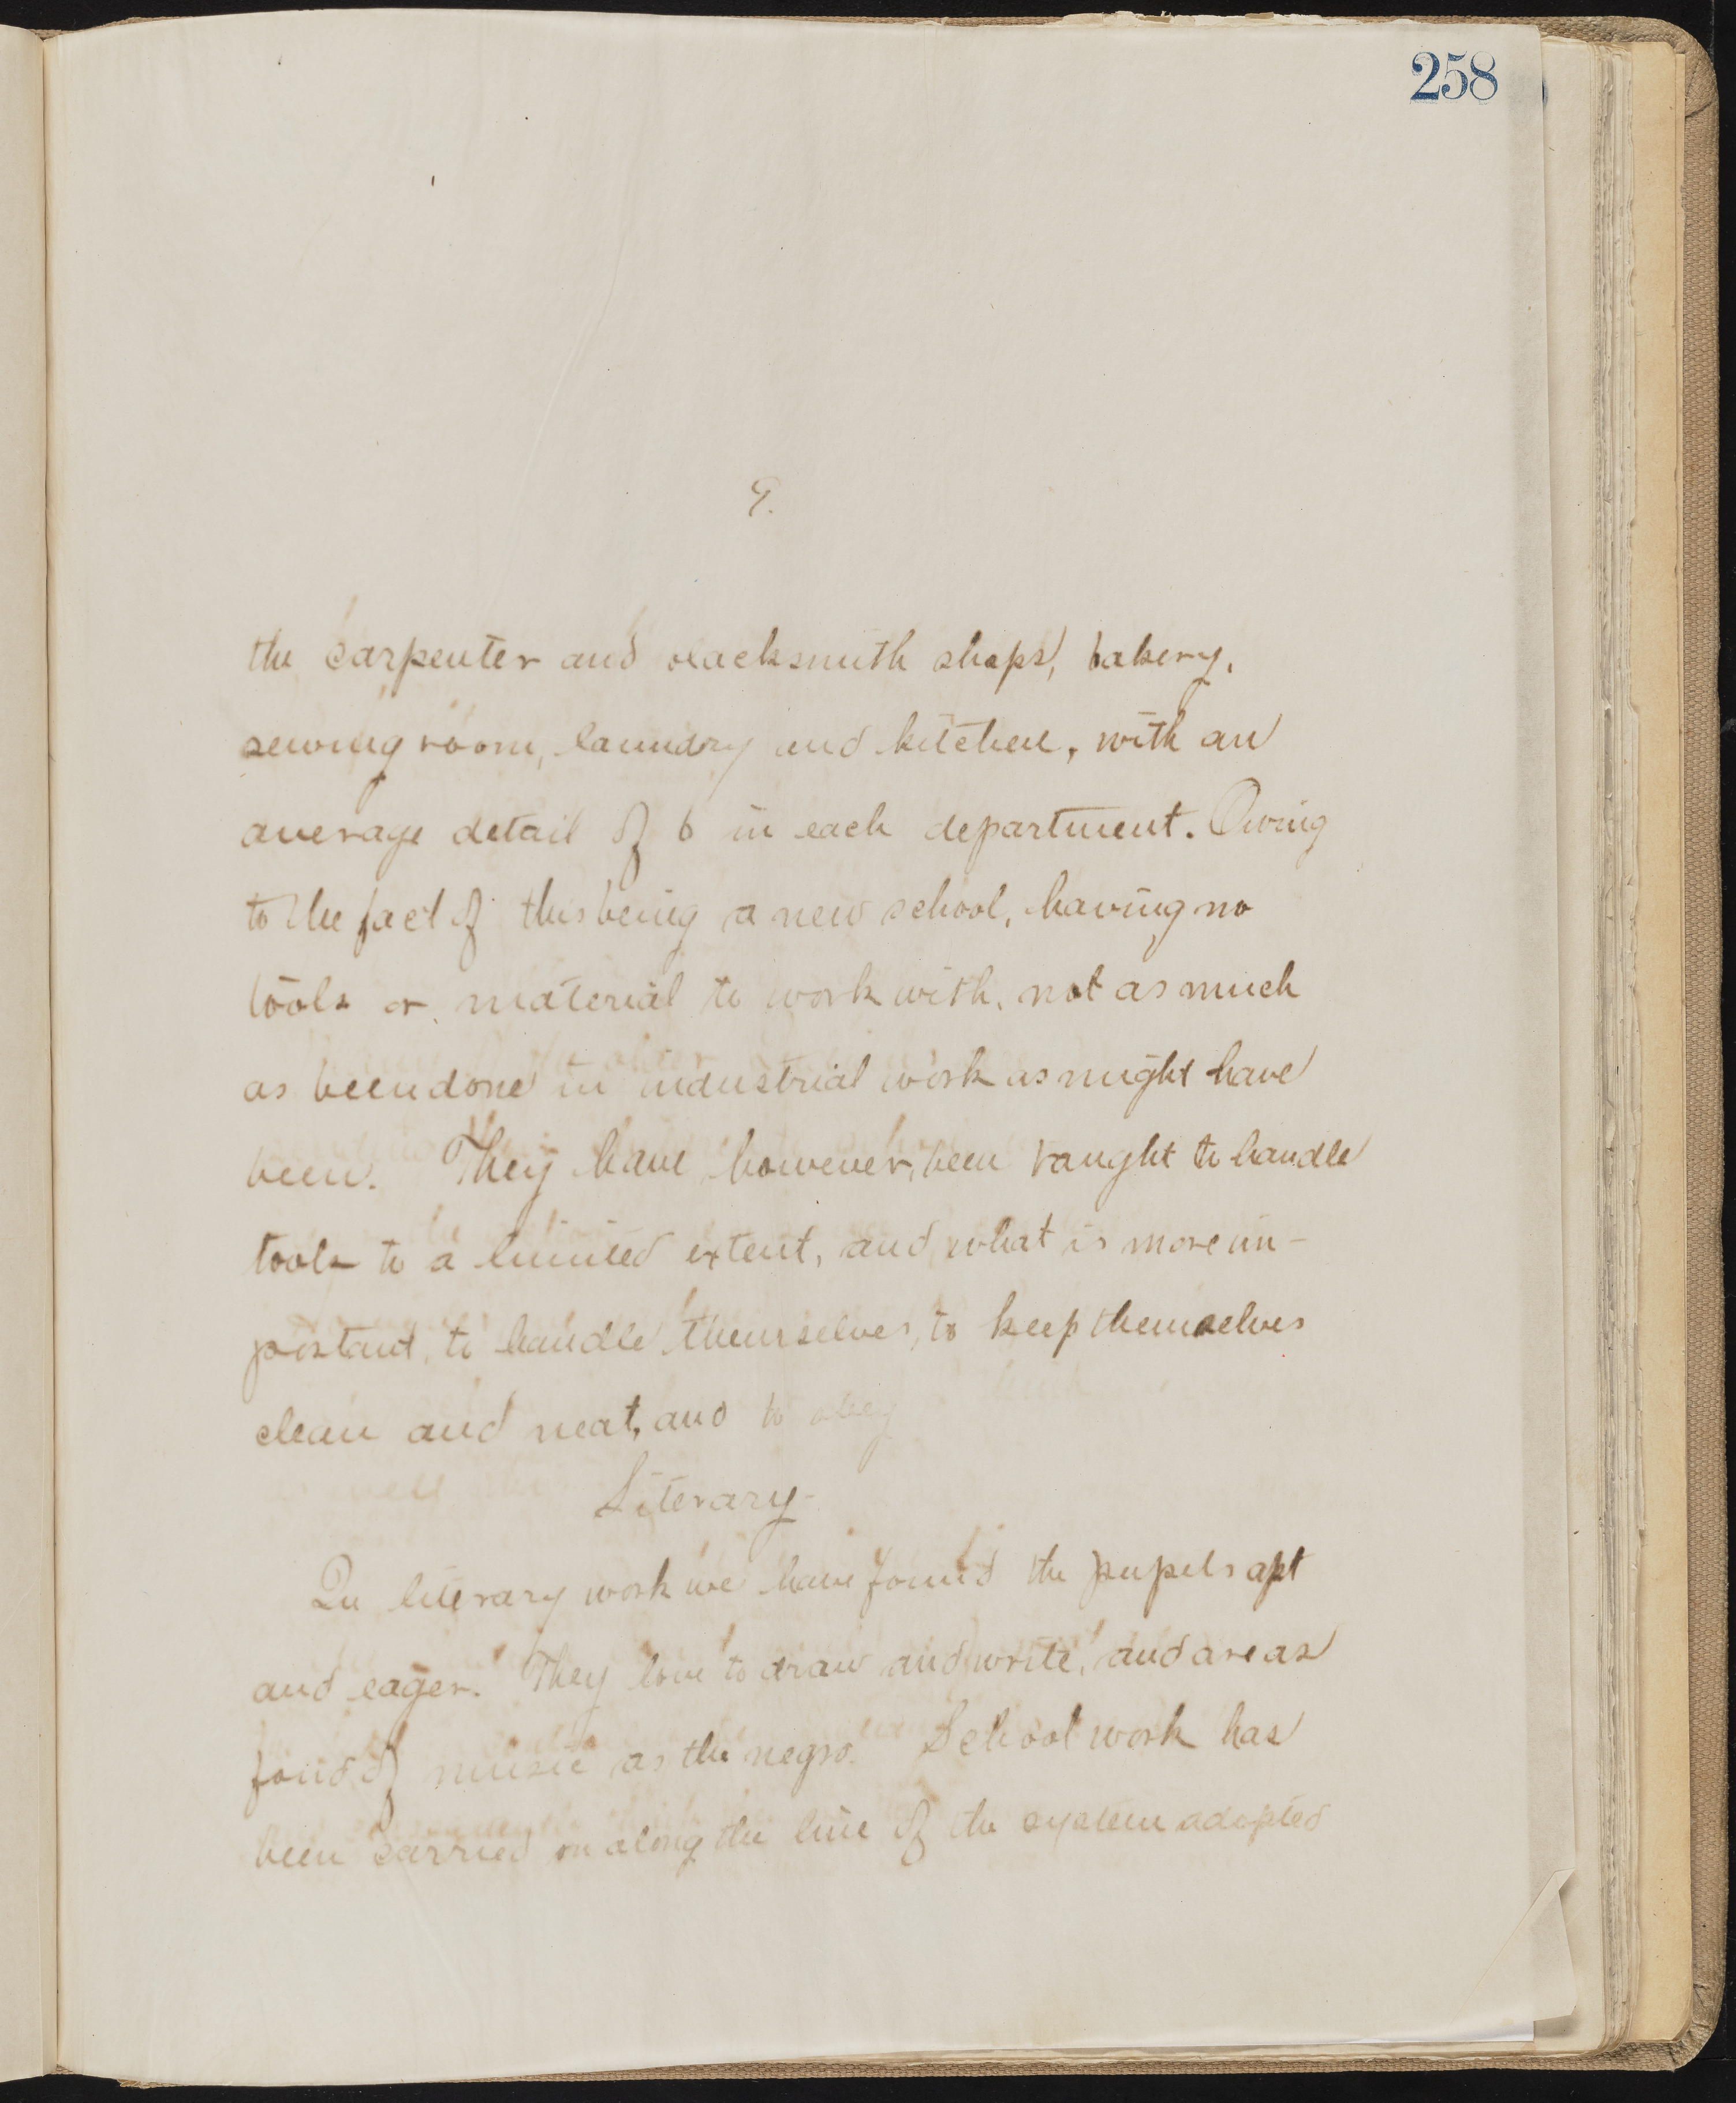 258
9.
the carpenter and blacksmith shops, bakery,
sewing room, laundry and kitchen, with an
average detail of 6 in each department. Owing
to the fact of this being a new school, having no
tools or material to work with, not as much
as been done in industrial work as might have
been. They have however, been taught to handle
tools to a limited extent, and what is more im-
portant, to handle themselves, to keep themselves
clean and neat, and to obey
Literary.
In literary work we have found the pupils apt
and eager. They love to draw and write, and are as
fond of music as the negro. School work has
been carried on along the line of the system adopted